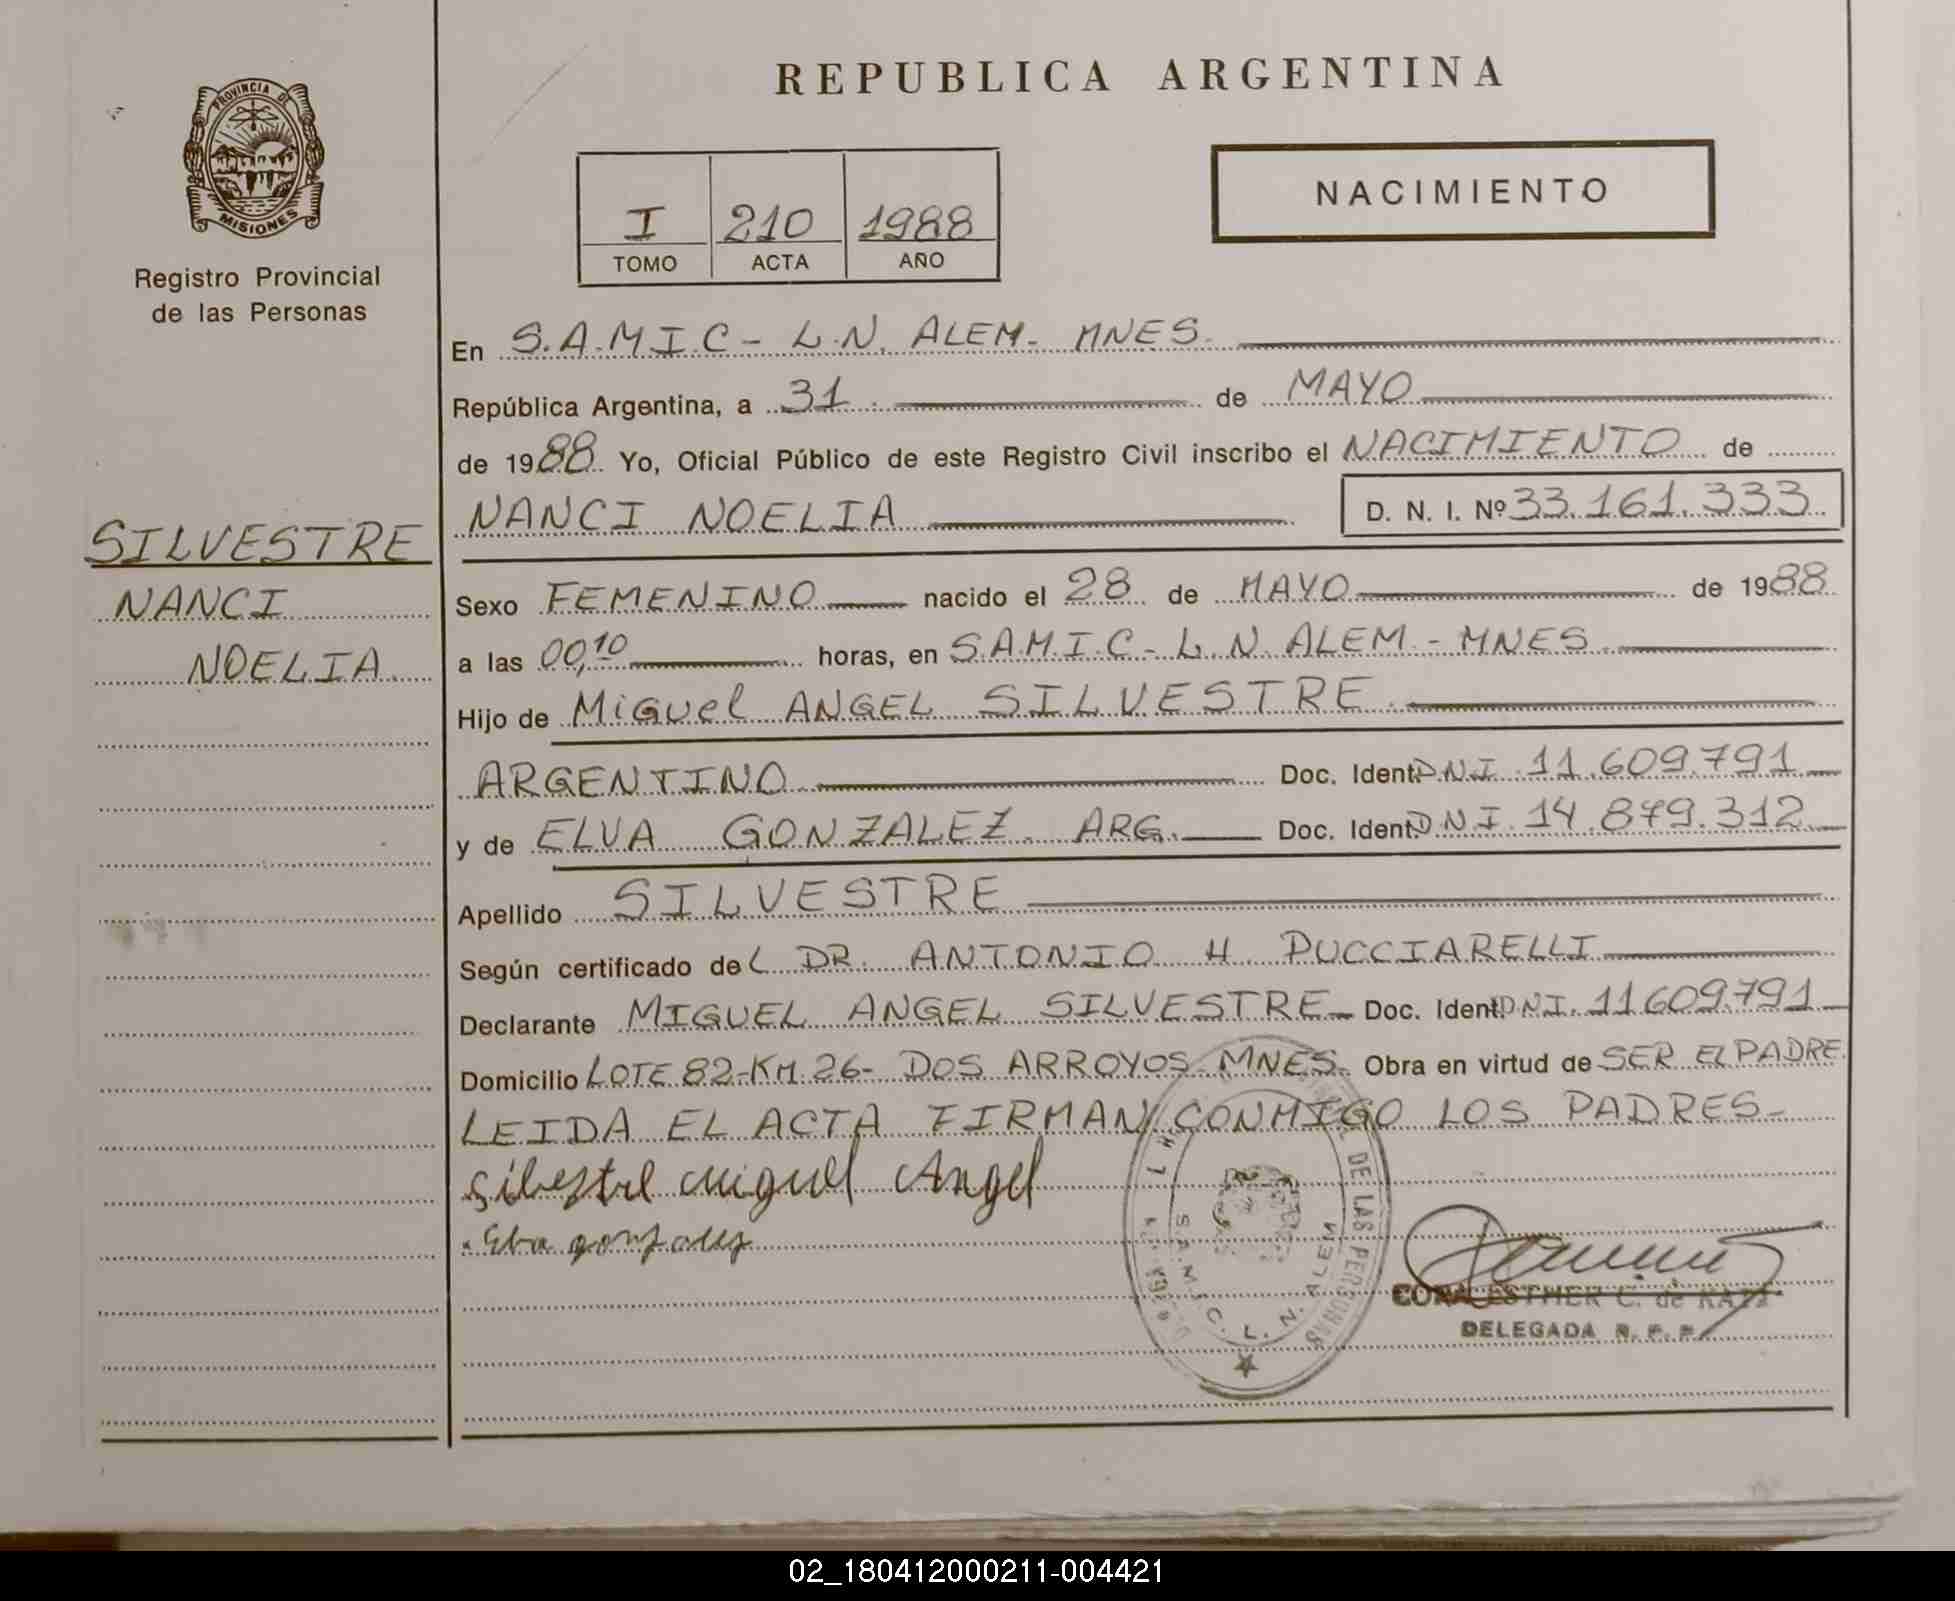 REPUBLICA ARGENTINA
PROVINCIA DE
MISIONES
Registro Provincial
de las Personas
I 210 1988
TOMO ACTA AÑO
NACIMIENTO
En S.A.M.I.C - L.N. ALEM - MNES.
República Argentina, a 31 de MAYO
de 1988. Yo, Oficial Público de este Registro Civil inscribo el NACIMIENTO de
NANCI NOELIA D. N. I. Nº 33.161.333
SILVESTRE
NANCI
NOELIA
Sexo FEMENINO nacido el 28 de MAYO de 1988
a las 00,10 horas, en S.A.M.I.C - L.N. ALEM - MNES
Hijo de MiGUel ANGEL SILVESTRE
ARGENTINO Doc. Ident. DNI. 11.609.791
y de ELVA GONZALEZ. ARG. Doc. Ident. DNI. 14.879.312
Apellido SILVESTRE
Según certificado del DR. ANTONIO H. PUCCIARELLI
Declarante MIGUEL ANGEL SILVESTRE Doc. Ident. DNI. 11609.791
Domicilio LOTE 82-KM.26- DOS ARROYOS MNES. Obra en virtud de SER EL PADRE.
LEIDA EL ACTA FIRMAN CONMIGO LOS PADRES-
Silvestre Miguel Angel
Elva gonzalez
DE LAS PERSONAS
S.A.M.I.C. L. N. ALEM
CORA ESTHER C. de
DELEGADA R. P. P.
02_180412000211-004421